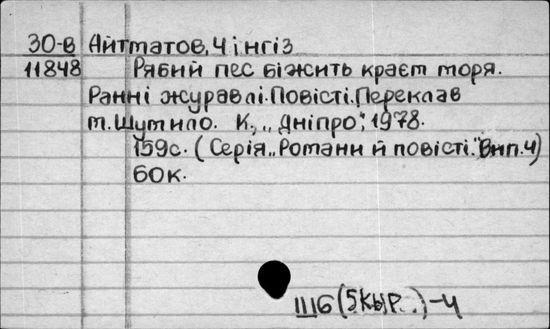 30-в Айтматов, Чінгіз
11848 Рябий пес біжить краєм моря.
Ранні журавлі. Повісті. Переклав
м. Шумило. К., „Дніпро", 1978.
159с. (Серія „Романи й повісті." Вип.4)
60к.
Ш6(5Кыр..)-4